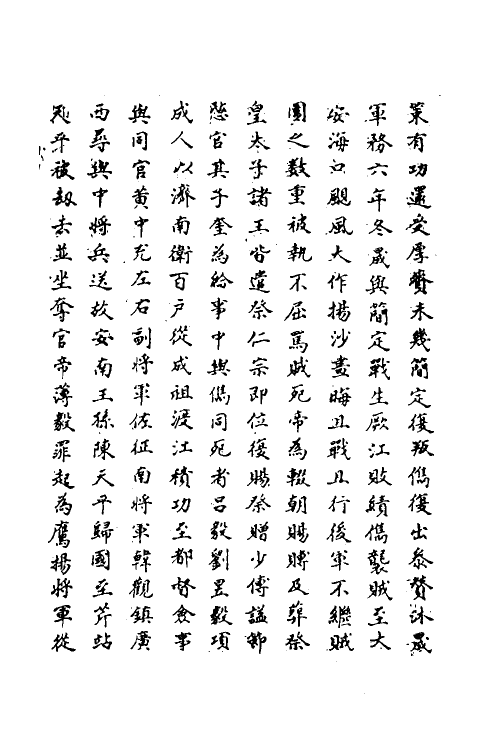 策有功還受厚賚未幾簡定復叛儁復出參贊沐晟
軍務六年冬晟與簡定戰生厥江敗績儁襲賊至大
安海口颶風大作揚沙晝晦且戰且行後軍不繼賊
圍之數重被執不屈罵賊死帝為輟朝賜賻及葬祭
皇太子諸王皆遣祭仁宗即位復賜祭贈少傅謚節
愍官其子奎為給事中與儁同死者呂毅劉昱毅項
成人以濟南衛百戶從成祖渡江積功至都督僉事
與同官黃中充左右副將軍佐征南將軍韓觀鎮廣
西尋與中將兵送故安南王孫陳天平歸國至芹站
天平被劫去並坐奪官帝薄毅罪起為鷹揚將軍從